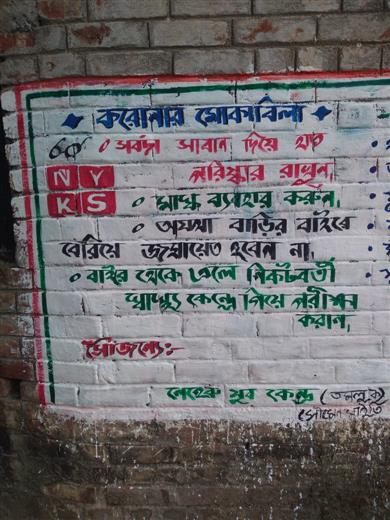 করোনার মোকাবিলা
০ সর্বদা সাবান দিয়ে হাত
NY পরিষ্কার রাখুন,
KS ০ মাস্ক ব্যবহার করুন,
০ অযথা বাড়ির বাইরে
বেরিয়ে জমায়েত হবেন না,
০ বাইরে থেকে এলে নিকটবর্তী
স্বাস্থ্য কেন্দ্রে গিয়ে পরীক্ষা
করান,
সৌজন্যে:-
নেহেরু যুব কেন্দ্র (তমলুক)